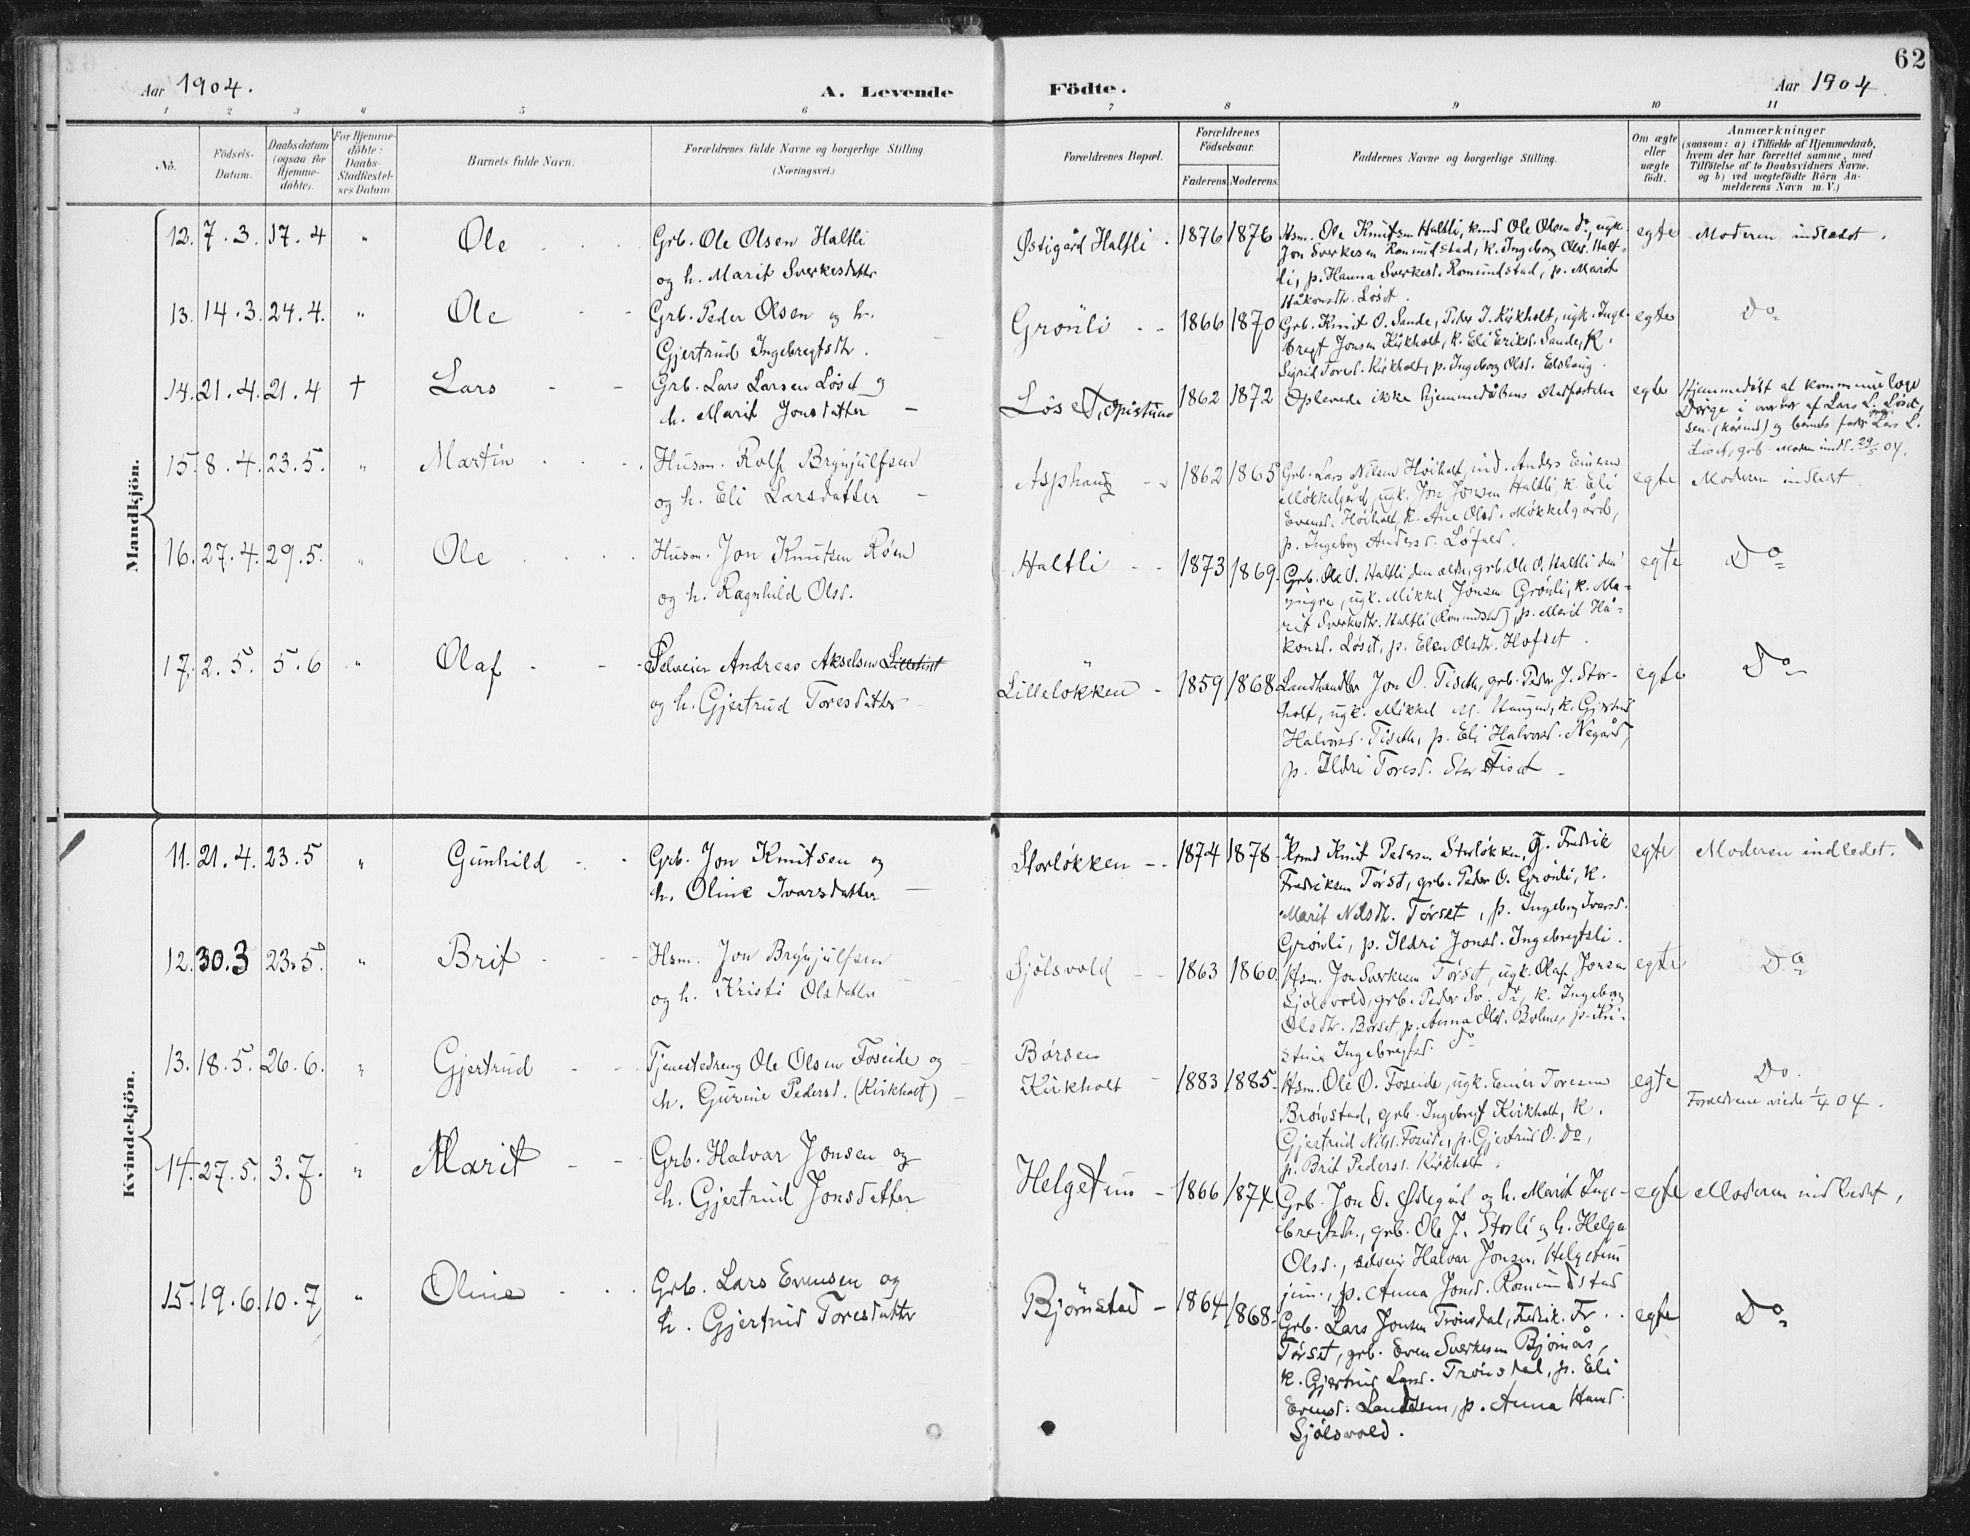 62
Aar 1904.
A. Levende
Födte.
Aar 1904.
1 2 3 4 5 6 7 8 9 10 11
No.
Födsels-
Datum.
Daabsdatum
(ogsaa for
Hjemme-
döbte).
For Hjemme-
döbte:
Daabs-
Stadfæstel-
ses Datum.
Barnets fulde Navn.
Forældrenes fulde Navne og borgerlige Stilling
(Næringsvei.)
Forældrenes Bopæl.
Forældrenes
Födselsaar.
Faderens. Moderens.
Faddernes Navne og borgerlige Stilling.
Om ægte
eller
uægte
födt.
Anmærkninger
(saasom: a) i Tilfælde af Hjemmedaab,
hvem der har forrettet samme, med
Tilföielse af to Daabsvidners Navne,
og b) ved uægtefödte Börn An-
melderens Navn m. V.)
Mandkjön.
12. 7.3. 17.4 " Ole
Grb. Ole Olsen Haltli
og h. Marit Sverkesdatter
Østigård Haltli.
1876 1876
Hsm. Ole Knutsen Haltli, kmd Ole Olsen do, ugk.
Jon Sverkesen Romundstad, k. Ingeborg Olsd. Halt-
li, p. Hanna Sverkesd. Romundstad, p. Marit
Håkonsdtr. Løset.
egte
Moderen indledet.
13. 14.3. 24.4. " Ole
Grb. Peder Olsen og h.
Gjertrud Ingebregtsdtr.
Grønli
1866 1870
Grb. Knut O. Sande, Peder J. Kirkholt, ugk. Inge-
bregt Jonsen Kirkholt, k. Eli Eriksd. Sande, k.
Sigrid Toresd. Kirkholt, p. Ingeborg Olsd. Edshaug.
egte
Do
14. 21.4. 21.4 † Lars
Grb. Lars Larsen Løset og
h. Marit Jonsdatter
Løset,
1862 1872
Oplevede ikke hjemmedåbens stadfæstelse
egte
Hjemmedøbt af kommunelæge
Dørge i overvær af Lars L. Løset,
sen. (kårmd) og barnets fader Lars L.
Løset, grb. Moderen indl. 29/5 04.
15. 8.4. 23.5. " Martin
Husm. Rolf Brynjulfsen
og h. Eli Larsdatter
Asphaug
1862 1865
Grb. Lars Nilsen Høiholt, ind. Anders Einersen
Møkkelgård, ugk. Jon Jonsen Haltli, k. Eli
Evensd. Høiholt, k. Ane Olsd. Møkkelgård,
p. Ingeborg Andersd. Løfald.
egte
Moderen indledt.
16. 27.4. 29.5. " Ole
Husm. Jon Knutsen Røen
og h. Ragnhild Olsd.
Haltli
1873 1869.
Grb. Ole O. Haltli den ældre, grb. Ole O. Haltli den
yngre, ugk. Mikkel Jonsen Grønli, k. Ma-
rit Sverkesdtr. Haltli (Romundstad), p. Marit Hå-
konsd. Løset, p. Elen Olsdtr. Hofset.
egte
Do
17. 2.5. 5.6 " Olaf
Selveier Andreas Akselsen Lilletiset
og h. Gjertrud Toresdatter
Lilleløkken
1859 1868
Landhandler Jon O. Tiseth, grb. Peder J. Stor-
holt, ugk. Mikkel M. Haugen, k. Gjertrud
Halvorsd. Tiseth, p. Eli Halvorsd. Negård,
p. Ildri Toresd. Stor Tiset
egte
Do
Kvindekjön.
11. 21.4. 23.5 " Gunhild
Grb. Jon Knutsen og
h. Oline Ivarsdatter
Storløkken
1874 1878
Kmd Knut Pedersen Storløkken, G. Fredrik
Fredriksen Tørset, grb. Peder O. Grønli, k.
Marit Nilsdtr. Tørset, p. Ingeborg Ivarsd.
Grønli, p. Ildri Jonsd. Ingebregtsli.
egte
Moderen indledet.
12. 30.3 23.5. " Brit
Hsm. Jon Brynjulfsen
og h. Kristi Olsdatter
Sjølsvold
1863 1860
Hsm. Jon Sverkesen Tørset, ugk. Olaf Jonsen
Sjølsvold, grb. Peder Sv. do, k. Ingeborg
Olsdtr. Børset, p. Anna Olsd. Bolme, p. Kri-
stine Ingebregtsd. do
egte
Do
13. 18.5. 26.6. " Gjertrud
Tjenestedreng Ole Olsen Foseide og
h. Gurine Pedersd. (Kirkholt)
Børsen
Kirkholt
1883 1885
Hsm. Ole O. Foseide, ugk. Einer Toresen
Brøvstad, grb. Ingebregt Kirkholt, k.
Gjertrud Nilsd. Foseide, p. Gjertrud O. do,
p. Brit Pedersd. Kirkholt.
egte
Do.
Forældrene viede 1/4 04.
14. 27.5. 3.7. " Marit
Grb. Halvar Jonsen og
h. Gjertrud Jonsdatter
Helgetun
1866 1874
Grb. Jon O. Ødegård og h. Marit Inge-
bregtsdtr., grb. Ole J. Storli og h. Helga
Olsd., selveier Halvar Jonsen Helgetun
jun., p. Anna Jonsd. Romundstad
egte
Moderen indledet,
15. 19.6. 10.7 " Oline
Grb. Lars Evensen og
h. Gjertrud Toresdatter
Bjørnstad
1864 1868
Grb. Lars Jonsen Trønsdal, Fredrik Fr.
Tørset, grb. Even Sverkesen Bjørnås,
k. Gjertrud Larsd. Trønsdal, p. Eli
Evensd. p. Anna Hansd.
Sjølsvold.
egte
Do